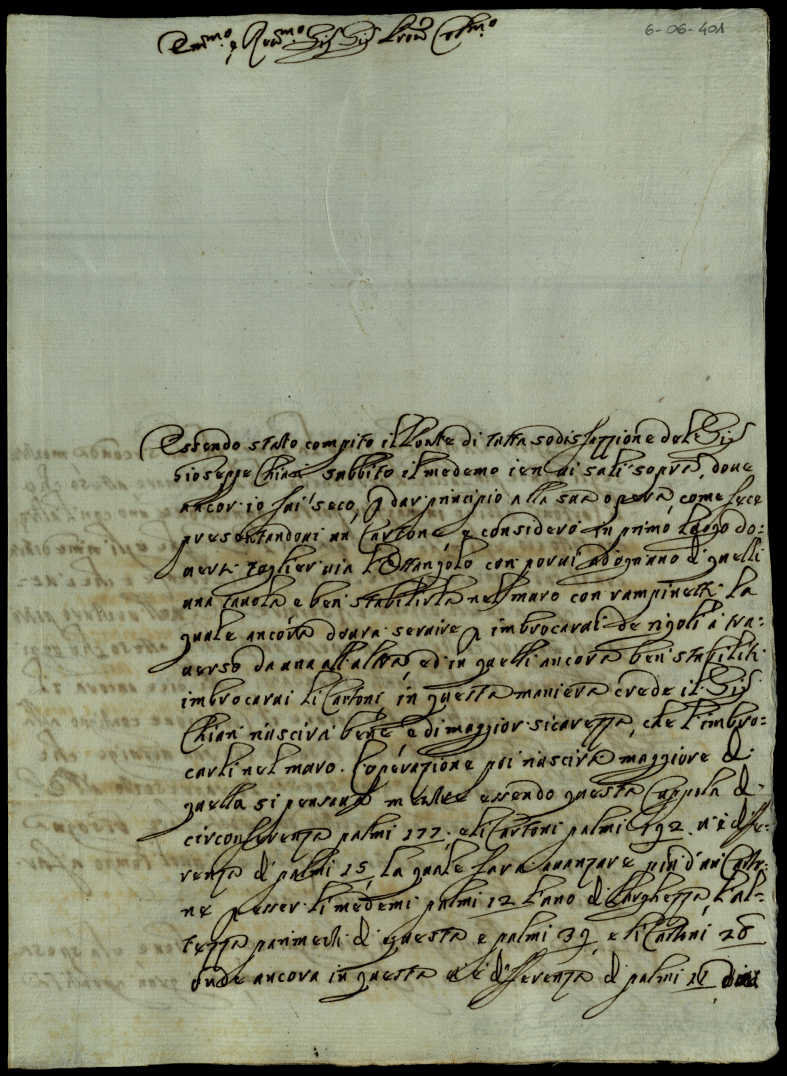 6-06-401
Em.mo e Rev.mo Sig.r Sig.r Pron Col.mo
Essendo stato compito il Ponte di tutta sodisfazzione del Sig.r
Gioseppe Chiari subbito il medemo ieri vi salì sopra, dove
ancor io fui seco, p dar principio alla sua opera, come fece
presentandoni un Cartone, e considerò in primo luogo do=
versi toglier via l'Ottangolo con porvi ad ognuno di quelli
una tavola e ben stabilirla nel muro con rampinetti la
quale ancora dovrà servire p imbrocarvi de rigoli à tra=
verso da una all'altra, ed in quelli ancora ben stabiliti
imbrocarvi li Cartoni, in questa maniera crede il Sig.r
Chiari riuscirà bene e di maggior sicurezza, che l'imbro=
carli nel muro. L'operazione poi riuscirà maggiore di
quella si pensava mentre essendo questa Cuppola di
circonferenza palmi 177, e li Cartoni palmi 192 vi è diffe=
renza di palmi 15, la quale farà avanzare più d'un Carto=
ne p esser li medemi palmi 12 l'uno di larghezza, l'al=
tezza parimenti di questa e palmi 39, e li Cartoni 28
onde ancora in questa vi è differenza di palmi 11